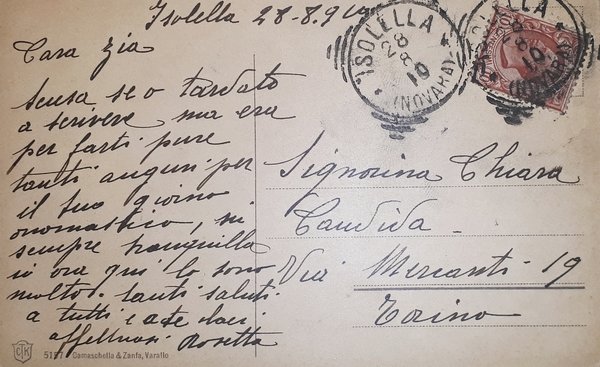 Isolella 28-8.910
Cara Zia
Scusa se o tardato
a scrivere ma era
per farti pure
tanti auguri per
il suo giorno
onomastico, sii
sempre tranquilla
io ora qui lo sono
molto. tanti saluti
a tutti e a te baci
affettuosi Rosetta
ISOLELLA
28 8 10
(NOVARA)
ISOLELLA
28 8 10
(NOVARA)
Signorina Chiara
Candida
Via Mercanti 19
Torino
CTK
5157 Camaschella & Zanfa, Varallo